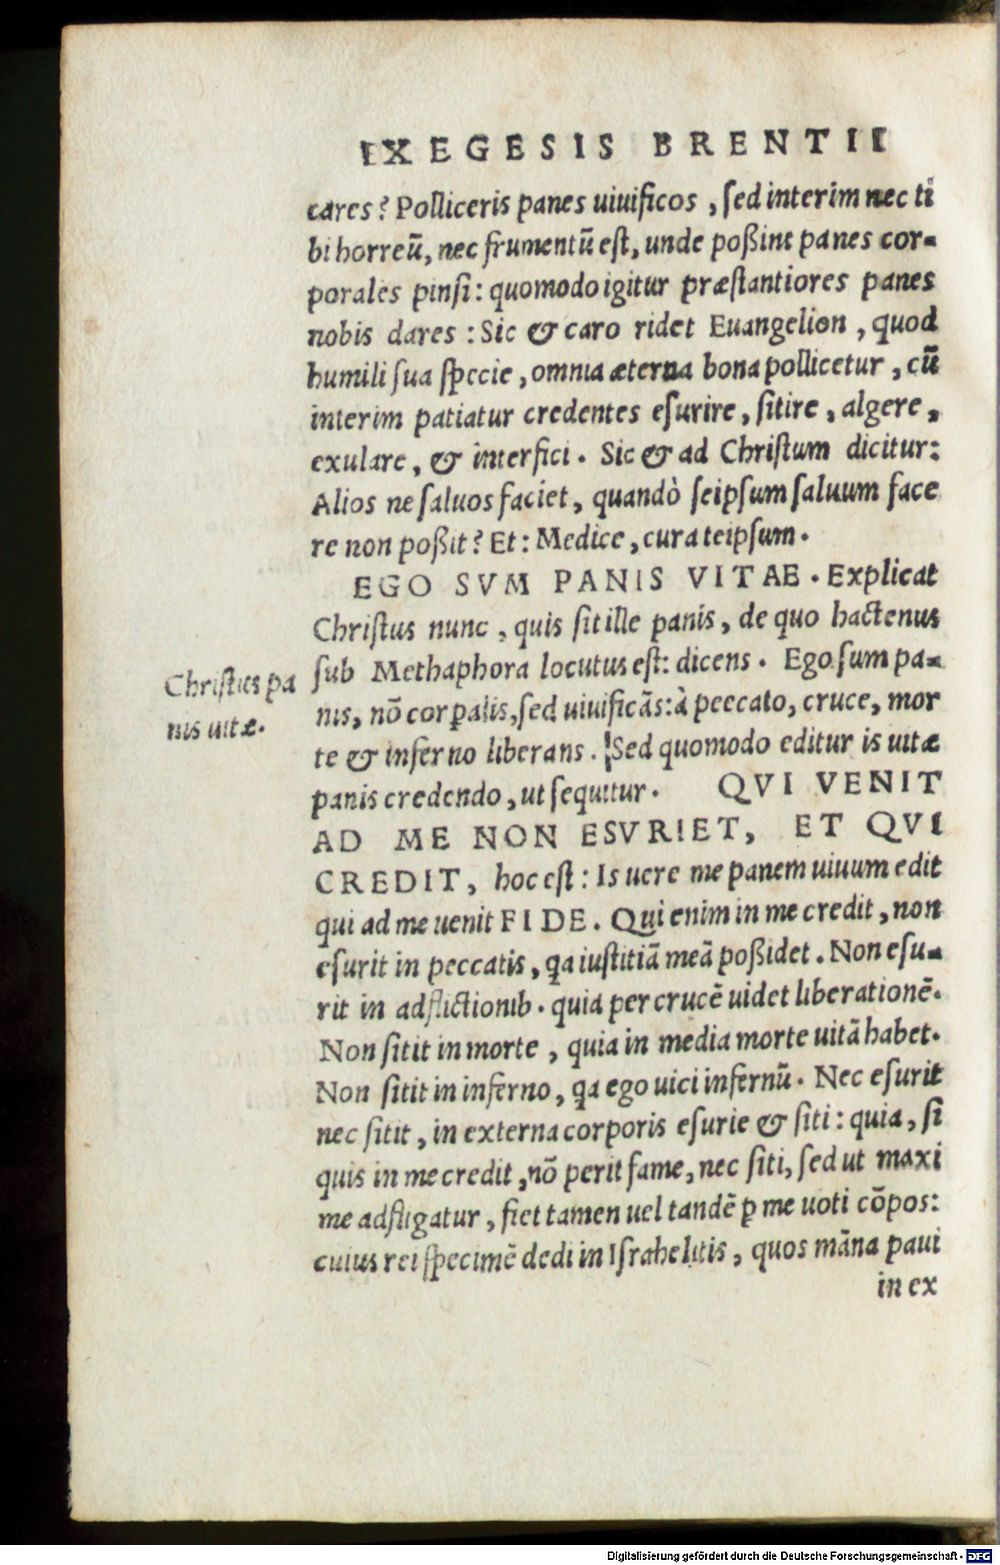 EXEGESIS BRENTII
cares? Polliceris panes uiuificos, sed interim nec ti
bi horreū, nec frumentū est, unde poßint panes cor-
porales pinsi: quomodo igitur præstantiores panes
nobis dares: Sic & caro ridet Euangelion, quod
humili sua specie, omnia æterna bona pollicetur, cū
interim patiatur credentes esurire, sitire, algere,
exulare, & interfici. Sic & ad Christum dicitur:
Alios ne saluos faciet, quandò seipsum saluum face
re non poßit? Et: Medice, cura teipsum.
EGO SVM PANIS VITAE. Explicat
Christus nunc, quis sit ille panis, de quo hactenus
sub Methaphora locutus est: dicens. Ego sum pa-
nis, nō corꝑalis, sed uiuificās: à peccato, cruce, mor
te & inferno liberans. Sed quomodo editur is uitæ
panis credendo, ut sequitur. QVI VENIT
AD ME NON ESVRIET, ET QVI
CREDIT, hoc est: Is uere me panem uiuum edit
qui ad me uenit FIDE. Qui enim in me credit, non
esurit in peccatis, qa iustitiā meā poßidet. Non esu-
rit in adflictionib. quia per crucē uidet liberationē.
Non sitit in morte, quia in media morte uitā habet.
Non sitit in inferno, qa ego uici infernū. Nec esurit
nec sitit, in externa corporis esurie & siti: quia, si
quis in me credit, nō perit fame, nec siti, sed ut maxi
me adfligatur, fiet tamen uel tandē ꝑ me uoti cōpos:
cuius rei specimē dedi in Israhelitis, quos māna paui
in ex
Christus pa
nis uitæ.
Digitalisierung gefördert durch die Deutsche Forschungsgemeinschaft - DFG